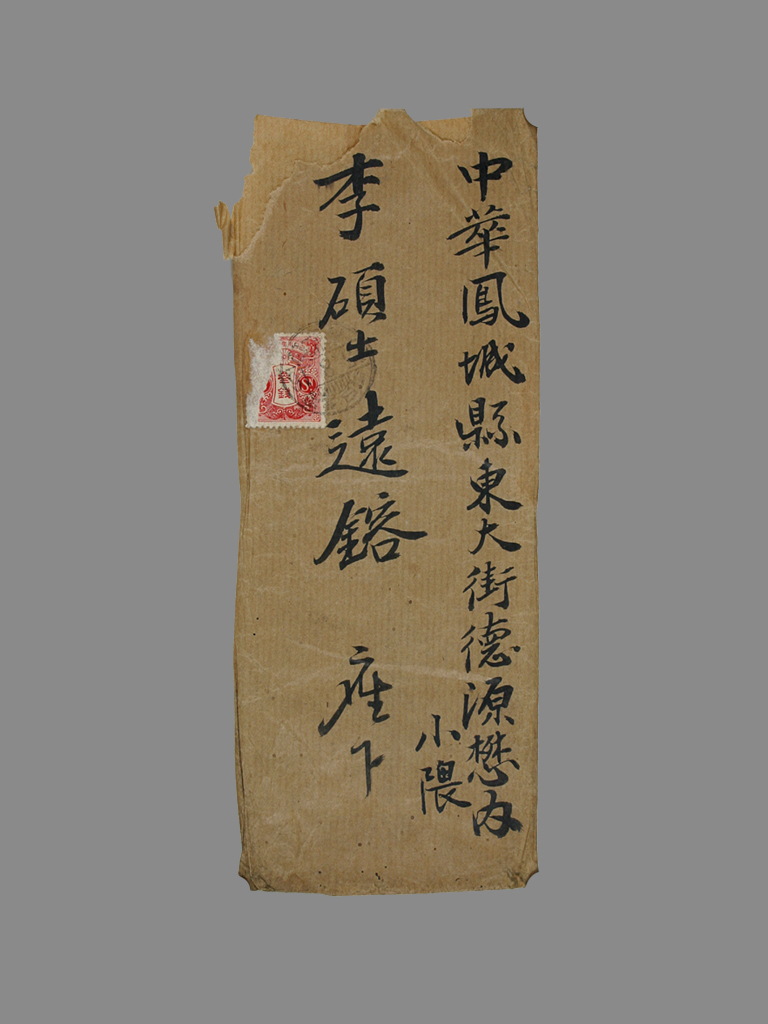 中華鳳城縣東大街德源懋内
小隈
李碩士遠鎔 座下
參錢